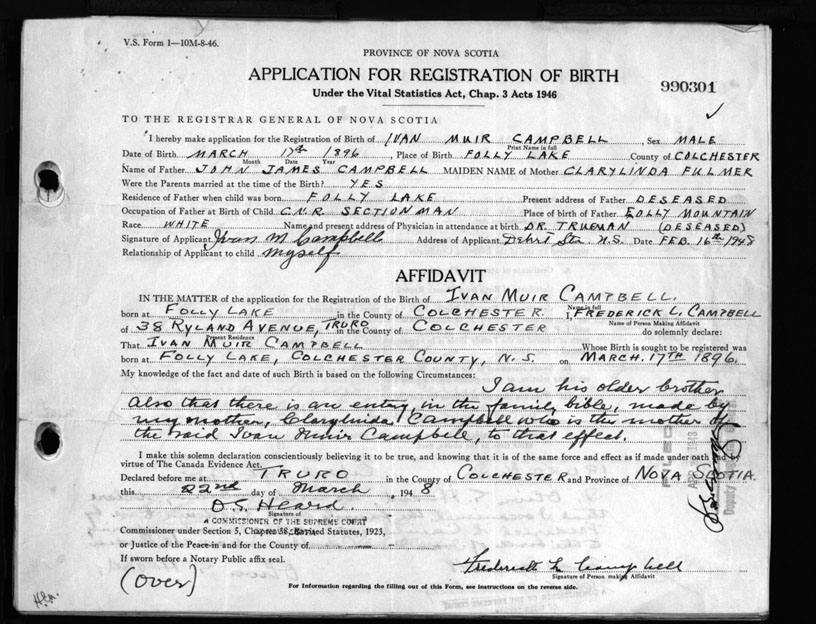 V.S. Form 1—10M-8-46.
PROVINCE OF NOVA SCOTIA
APPLICATION FOR REGISTRATION OF BIRTH
990301
Under the Vital Statistics Act, Chap. 3 Acts 1946
TO THE REGISTRAR GENERAL OF NOVA SCOTIA
I hereby make application for the Registration of Birth of IVAN MUIR CAMPBELL, Sex MALE
Print Name in full
Date of Birth MARCH 17th 1896, Place of Birth FOLLY LAKE County of COLCHESTER
Month Date Year
Name of Father JOHN JAMES CAMPBELL MAIDEN NAME of Mother CLARYLINDA FULMER
Were the Parents married at the time of the Birth? YES
Residence of Father when child was born FOLLY LAKE Present address of Father DESEASED
Occupation of Father at Birth of Child C.N.R. SECTIONMAN Place of birth of Father FOLLY MOUNTAIN
Race WHITE Name and present address of Physician in attendance at birth DR. TRUEMAN (DESEASED)
Signature of Applicant Ivan M Campbell Address of Applicant Debert Sta. N.S. Date FEB. 16th 1948
Relationship of Applicant to child myself
AFFIDAVIT
IN THE MATTER of the application for the Registration of the Birth of IVAN MUIR CAMPBELL.
Name in full
born at FOLLY LAKE in the County of COLCHESTER. I, FREDERICK L. CAMPBELL
Name of Person Making Affidavit
of 38 RYLAND AVENUE, TRURO in the County of COLCHESTER do solemnly declare:
Present Residence
That IVAN MUIR CAMPBELL Whose Birth is sought to be registered was
born at FOLLY LAKE, COLCHESTER COUNTY, N.S. on MARCH. 17TH 1896.
My knowledge of the fact and date of such Birth is based on the following Circumstances:
I am his older brother
also that there is an entry in the family bible, made by
my mother, Clarylinda Campbell who is the mother of
the said Ivan Muir Campbell, to that effect.
I make this solemn declaration conscientiously believing it to be true, and knowing that it is of the same force and effect as if made under oath and by
virtue of The Canada Evidence Act.
Declared before me at TRURO in the County of COLCHESTER and Province of NOVA SCOTIA.
this 22nd day of March, 1948
O. S. Heard.
Signature of
A COMMISSIONER OF THE SUPREME COURT
Commissioner under Section 5, Chapter 38, Revised Statutes, 1923,
or Justice of the Peace in and for the County of
If sworn before a Notary Public affix seal.
Frederick L Campbell
Signature of Person making Affidavit
(Over)
For Information regarding the filling out of this Form, see instructions on the reverse side.